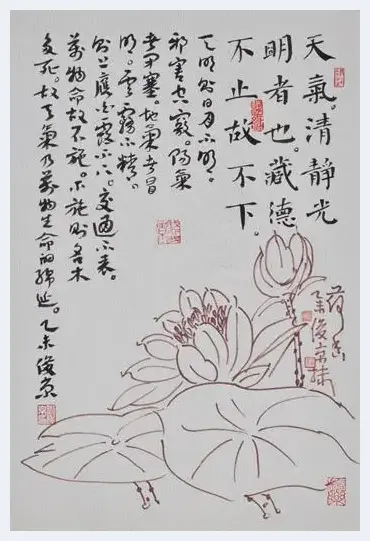 天氣。清靜光
明者也。藏德
不止故不下。
天明則日月不明。
邪害空竅。陽氣
者閉塞。地氣者冒
明。雲霧不精。
則上應白露不下。交通不表。
萬物命故不施。不施則名木
多死。故天氣乃萬物生命的綿延。乙未俊京
荷香
乙未俊京